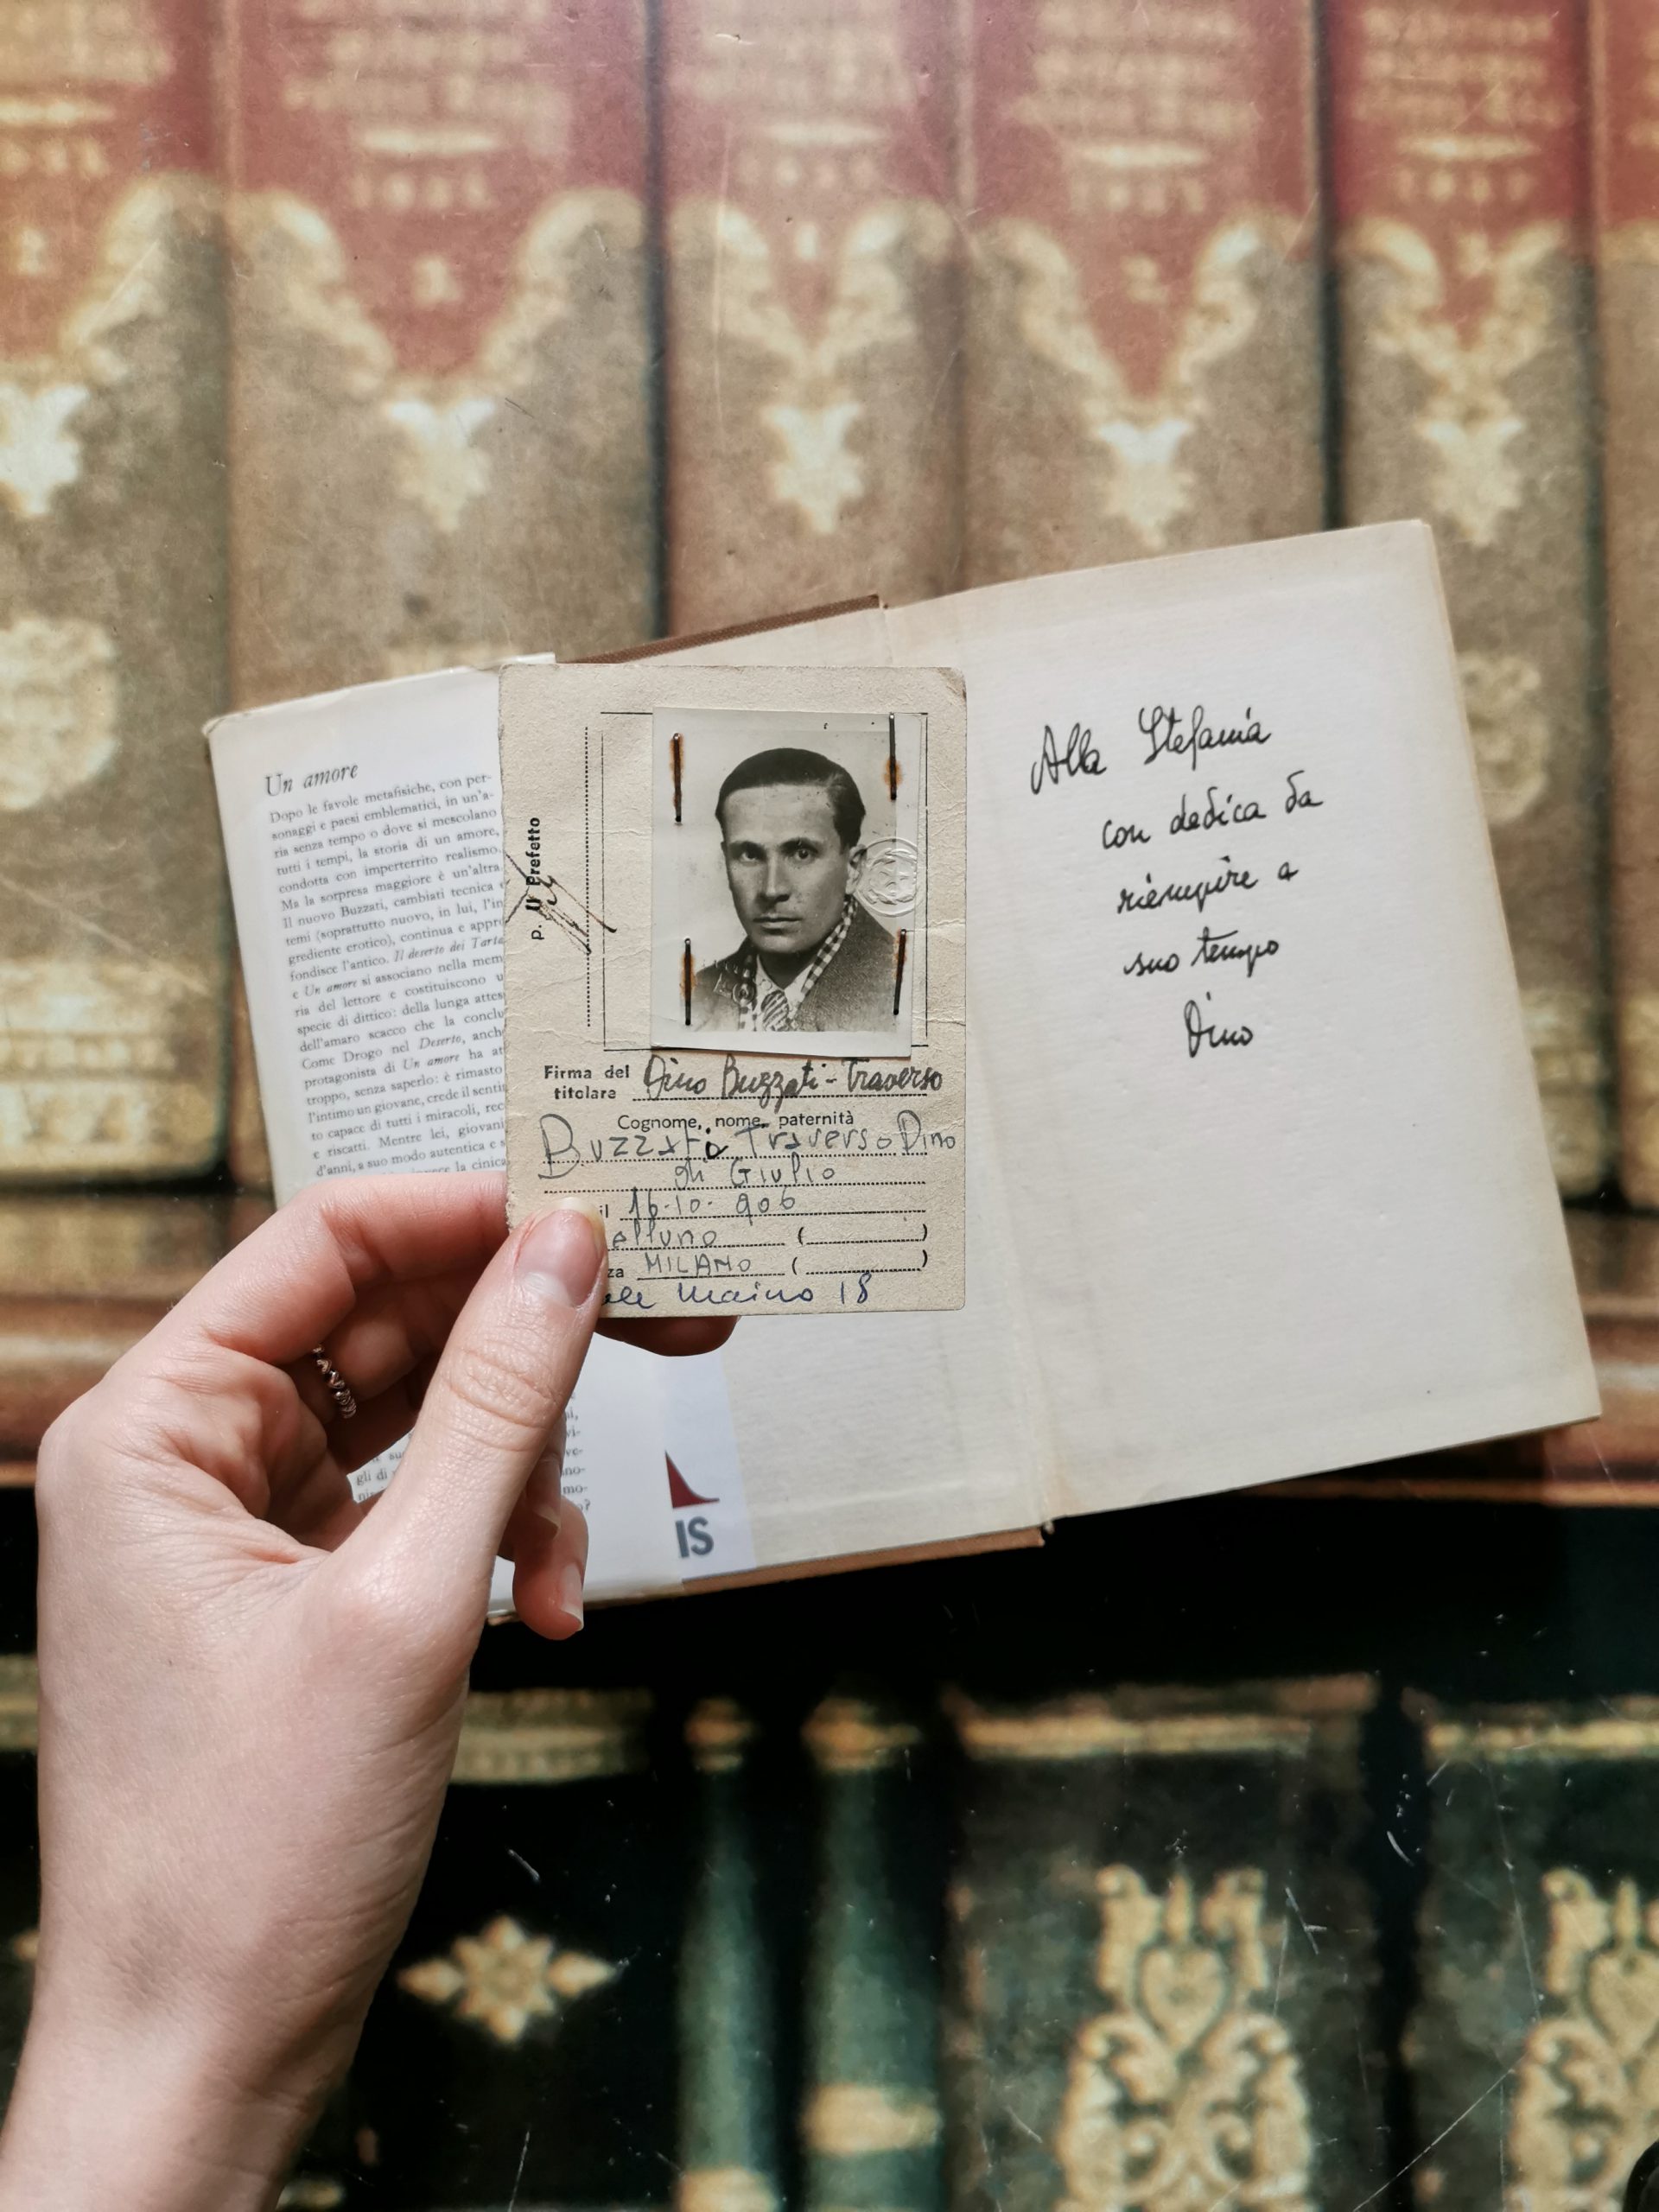 Un amore
Dopo le favole metafisiche, con per-
sonaggi e paesi emblematici, in un'a-
ria senza tempo o dove si mescolano
tutti i tempi, la storia di un amore,
condotta con imperterrito realismo.
Ma la sorpresa maggiore è un'altra.
Il nuovo Buzzati, cambiati tecnica e
temi (soprattutto nuovo, in lui, l'in
grediente erotico), continua e appro
fondisce l'antico. Il deserto dei Tarta
e Un amore si associano nella mem
ria del lettore e costituiscono u
specie di dittico: della lunga attes
dell'amaro scacco che la conclu
Come Drogo nel Deserto, anch
protagonista di Un amore ha at
troppo, senza saperlo: è rimasto
l'intimo un giovane, crede il senti
to capace di tutti i miracoli, rec
e riscatti. Mentre lei, giovani
d'anni, a suo modo autentica e s
la cinica
gli di
p. Il Prefetto
Firma del
titolare Dino Buzzati-Traverso
Cognome, nome, paternità
Buzzati Traverso Dino
di Giulio
il 16-10-906
elluno ( )
za MILANO ( )
ale Maino 18
IS
Alla Stefania
con dedica da
riempire a
suo tempo
Dino